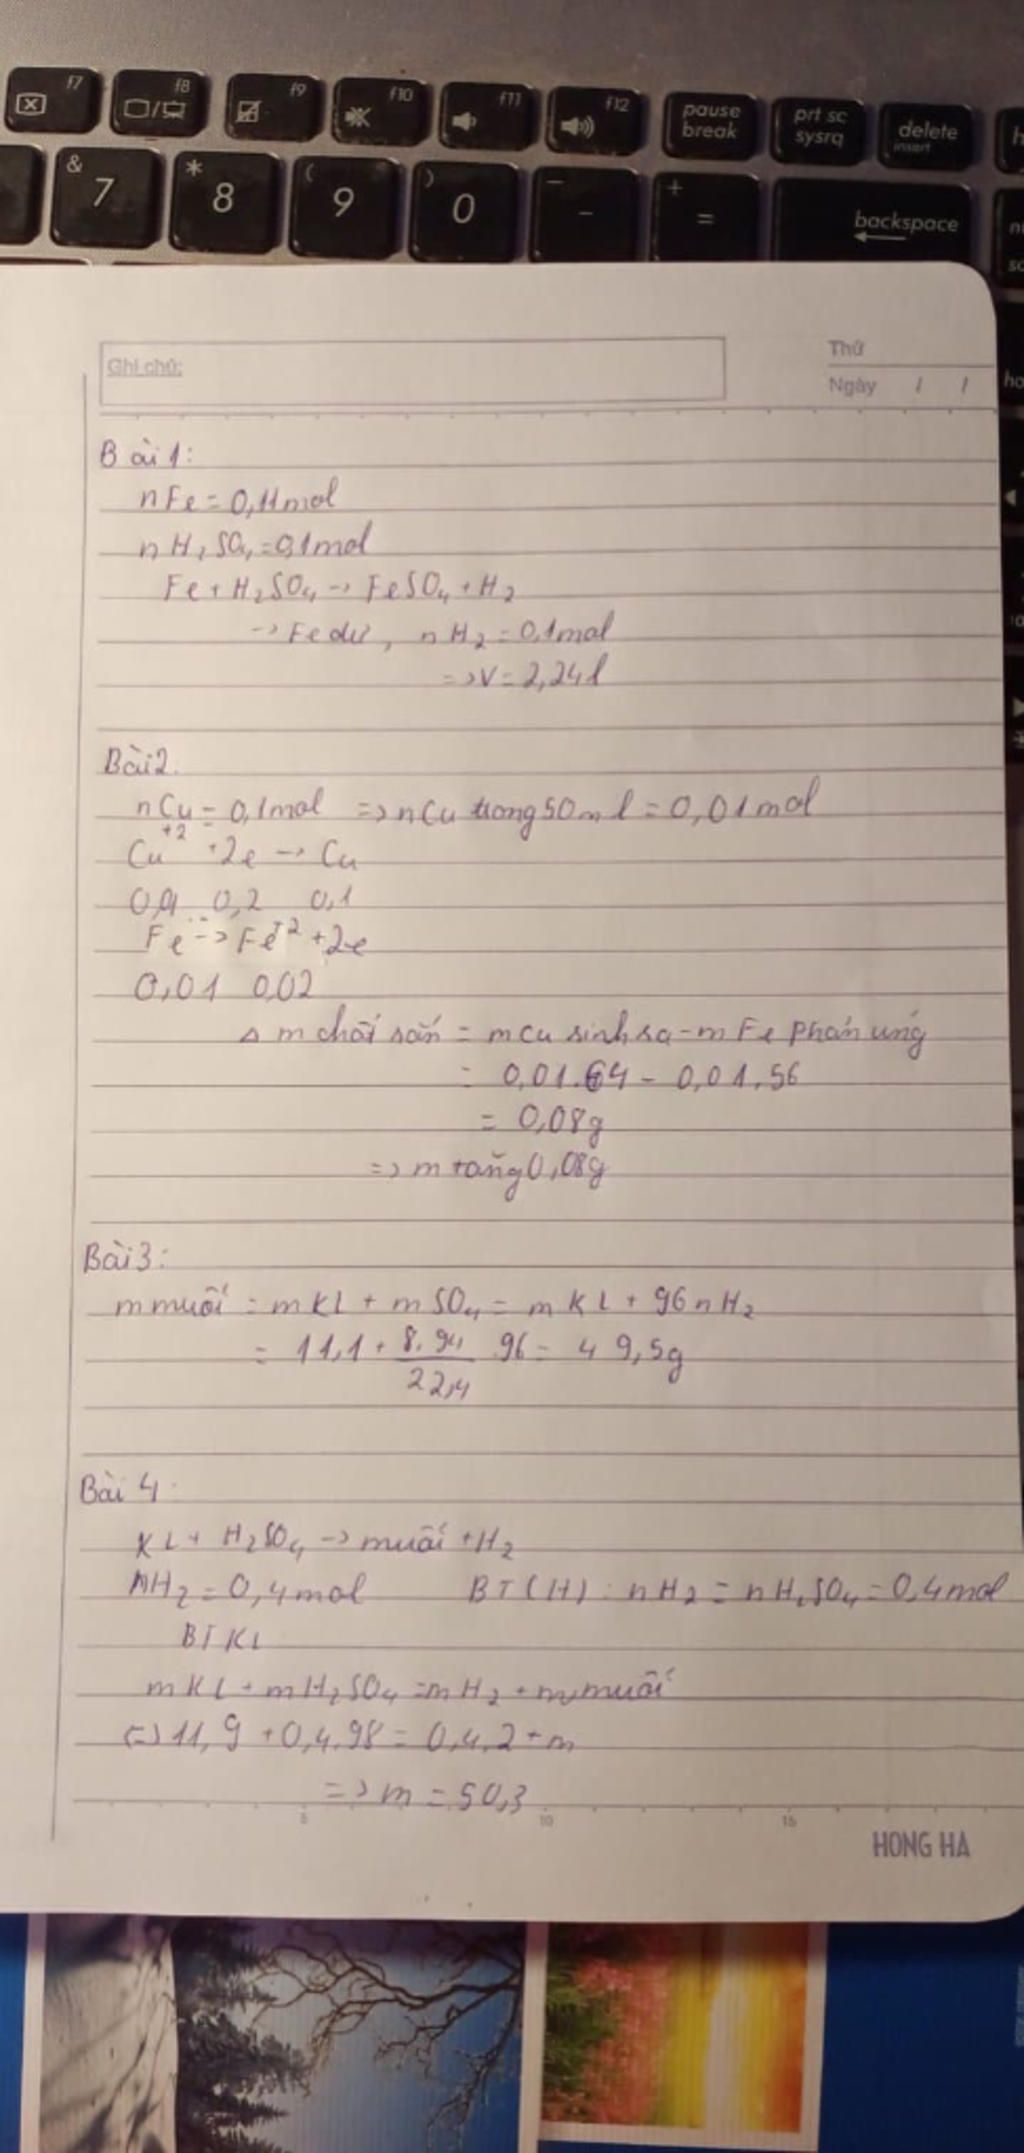 f7 f8 f9 f10 f11 f12 pause break prt sc sysrq delete insert
& 7 * 8 ( 9 ) 0 _ - + = backspace
Ghi chú:
Thứ
Ngày / /
Bài 1:
nFe = 0,11mol
nH2SO4 = 0,1mol
Fe + H2SO4 → FeSO4 + H2
→ Fe dư, nH2 = 0,1mol
=> V = 2,24l
Bài 2.
nCu = 0,1mol => nCu trong 50ml = 0,01mol
Cu+2 +2e → Cu
0,2 0,1
Fe → Fe+2 + 2e
0,01 0,02
Δ m chất rắn = mCu sinh ra - mFe phản ứng
= 0,01.64 - 0,01.56
= 0,08g
=> m tăng 0,08g
Bài 3:
m muối = mKL + mSO4 = mKL + 96nH2
= 11,1 + 8,94/22,4 . 96 = 49,5g
Bài 4:
KL + H2SO4 → muối + H2
nH2 = 0,4mol BT(H): nH2 = nH2SO4 = 0,4mol
BTKL
mKL + mH2SO4 = mH2 + m muối
<=> 11,9 + 0,4.98 = 0,4.2 + m
=> m = 50,3
5 10 15
HONG HA